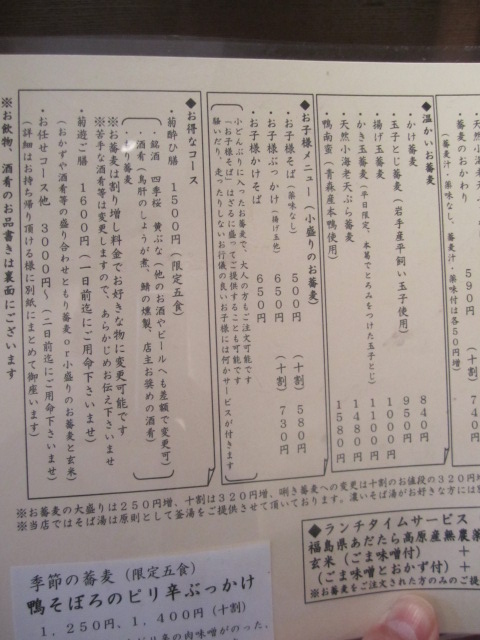 蕎麦のおかわり 590円 (十割)740円
(蕎麦汁・薬味なし、蕎麦汁・薬味付は各50円増)
◆温かいお蕎麦
・かけ蕎麦 840円
・玉子とじ蕎麦(岩手産平飼い玉子使用) 950円
・揚げ玉蕎麦 1000円
・かき玉蕎麦(平日限定、本葛でとろみをつけた玉子とじ) 1100円
・天然小海老天ぷら蕎麦 1480円
・鴨南蛮(青森産本鴨使用) 1580円
◆お子様メニュー(小盛りのお蕎麦)
・お子様そば(薬味なし) 500円 (十割)580円
・お子様ぶっかけ(揚げ玉他) 650円 (十割)730円
・お子様かけそば 650円
小どんぶりに入ったお蕎麦で、大人の方もご注文可能です
(「お子様そば」はざるに盛ってご提供することも可能です)
騒いだり、走ったりしないお行儀の良いお子様には何かサービスが付きます
◆お得なコース
・菊酔ひ膳 1500円(限定五食)
・銘酒 四季桜 黄ぶな(他のお酒やビールへも差額で変更可)
・酒肴(鳥肝のしょうが煮、鯖の燻製、店主お奨めの酒肴)
・もり蕎麦
※お蕎麦は割り増し料金でお好きな物に変更可能です
※苦手な酒肴等は変更しますので、あらかじめお伝え下さいませ
・菊遊ご膳 1600円(一日前迄にご用命下さいませ)
(おかずや酒肴等の盛り合わせともり蕎麦or小盛りのお蕎麦と玄米)
・お任せコース他 3000円~(二日前迄にご用命下さいませ)
(詳細はお持ち帰り頂ける様に別紙にまとめて御座います)
※お飲物、酒肴のお品書きは裏面にございます
※お蕎麦の大盛りは250円増、十割は320円増、
※当店ではそば湯は原則として釜湯をご提供させて頂いております。濃いそば湯がお好きな方には
◆ランチタイムサービス
福島県あだたら高原産無農薬
玄米(ごま味噌付) +
(ごま味噌とおかず付) +
※お蕎麦をご注文された方のみのご提
季節の蕎麦(限定五食)
鴨そぼろのピリ辛ぶっかけ
1,250円、1,400円(十割)
の肉味噌がのった、